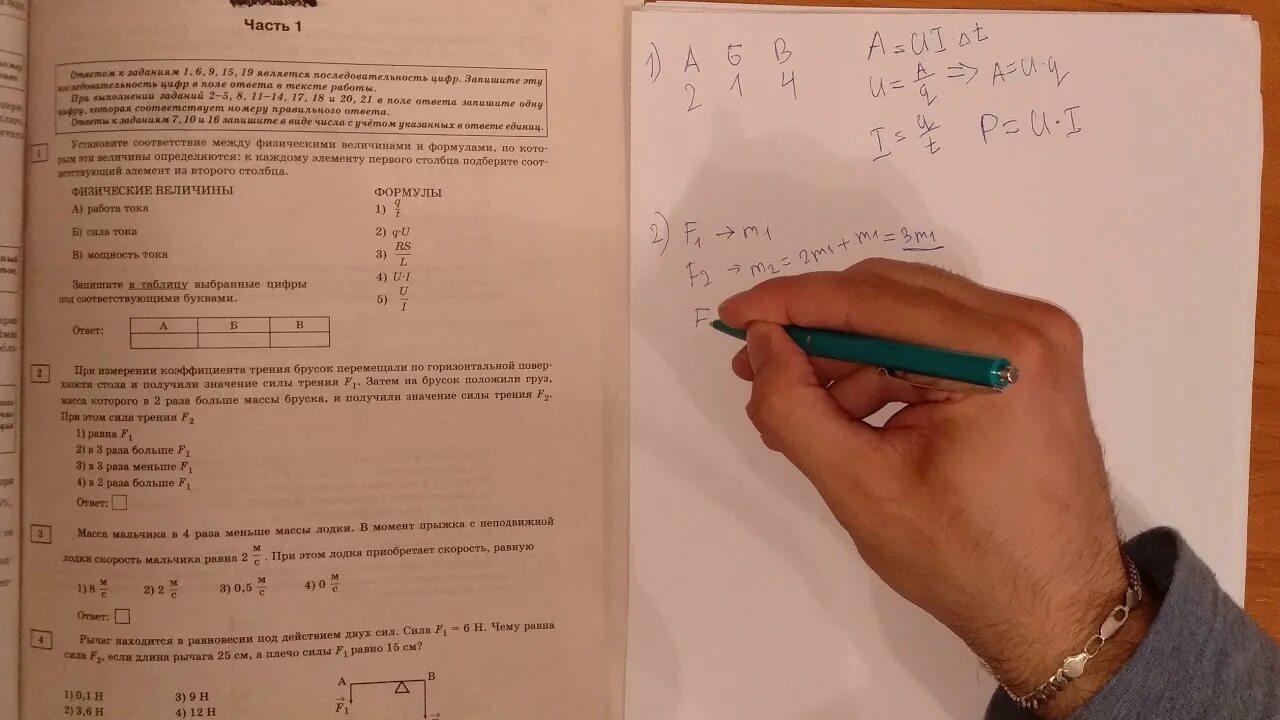 Часть 1
Ответом к заданиям 1, 6, 9, 15, 19 является последовательность цифр. Запишите эту
последовательность цифр в поле ответа в тексте работы.
При выполнении заданий 2–5, 8, 11–14, 17, 18 и 20, 21 в поле ответа запишите одну
цифру, которая соответствует номеру правильного ответа.
Ответы к заданиям 7, 10 и 16 запишите в виде числа с учётом указанных в ответе единиц.
1
Установите соответствие между физическими величинами и формулами, по кото-
рым эти величины определяются: к каждому элементу первого столбца подберите соот-
ветствующий элемент из второго столбца.
ФИЗИЧЕСКИЕ ВЕЛИЧИНЫ
А) работа тока
Б) сила тока
В) мощность тока
ФОРМУЛЫ
1) q/t
2) q·U
3) RS/L
4) U·I
5) U/I
Запишите в таблицу выбранные цифры
под соответствующими буквами.
Ответ:
А Б В
2
При измерении коэффициента трения брусок перемещали по горизонтальной повер-
хности стола и получили значение силы трения F₁. Затем на брусок положили груз,
масса которого в 2 раза больше массы бруска, и получили значение силы трения F₂.
При этом сила трения F₂
1) равна F₁
2) в 3 раза больше F₁
3) в 3 раза меньше F₁
4) в 2 раза больше F₁
Ответ:
3
Масса мальчика в 4 раза меньше массы лодки. В момент прыжка с неподвижной
лодки скорость мальчика равна 2 м/с. При этом лодка приобретает скорость, равную
1) 8 м/с 2) 2 м/с 3) 0,5 м/с 4) 0 м/с
Ответ:
4
Рычаг находится в равновесии под действием двух сил. Сила F₁ = 6 Н. Чему равна
сила F₂, если длина рычага 25 см, а плечо силы F₁ равно 15 см?
1) 0,1 Н 3) 9 Н
2) 3,6 Н 4) 12 Н
A B
F₁
1) А Б В
2 1 4
A = UI·Δt
U = A/q ⇒ A = U·q
I = q/t P = U·I
2) F₁ → m₁
F₂ → m₂ = 2m₁ + m₁ = 3m₁
F